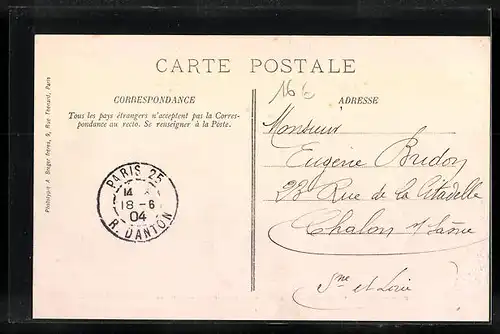 CARTE POSTALE
166
CORRESPONDANCE
Tous les pays étrangers n'acceptent pas la Corres-
pondance au recto. Se renseigner à la Poste.
ADRESSE
Monsieur
Eugène Bridoy
23 Rue de la Citadelle
Chalon s/ Saône
Sne et Loire
PARIS 25
14
18 - 6
04
R. DANTON
Phototypie A. Breger frères, 9, Rue Thénard, Paris